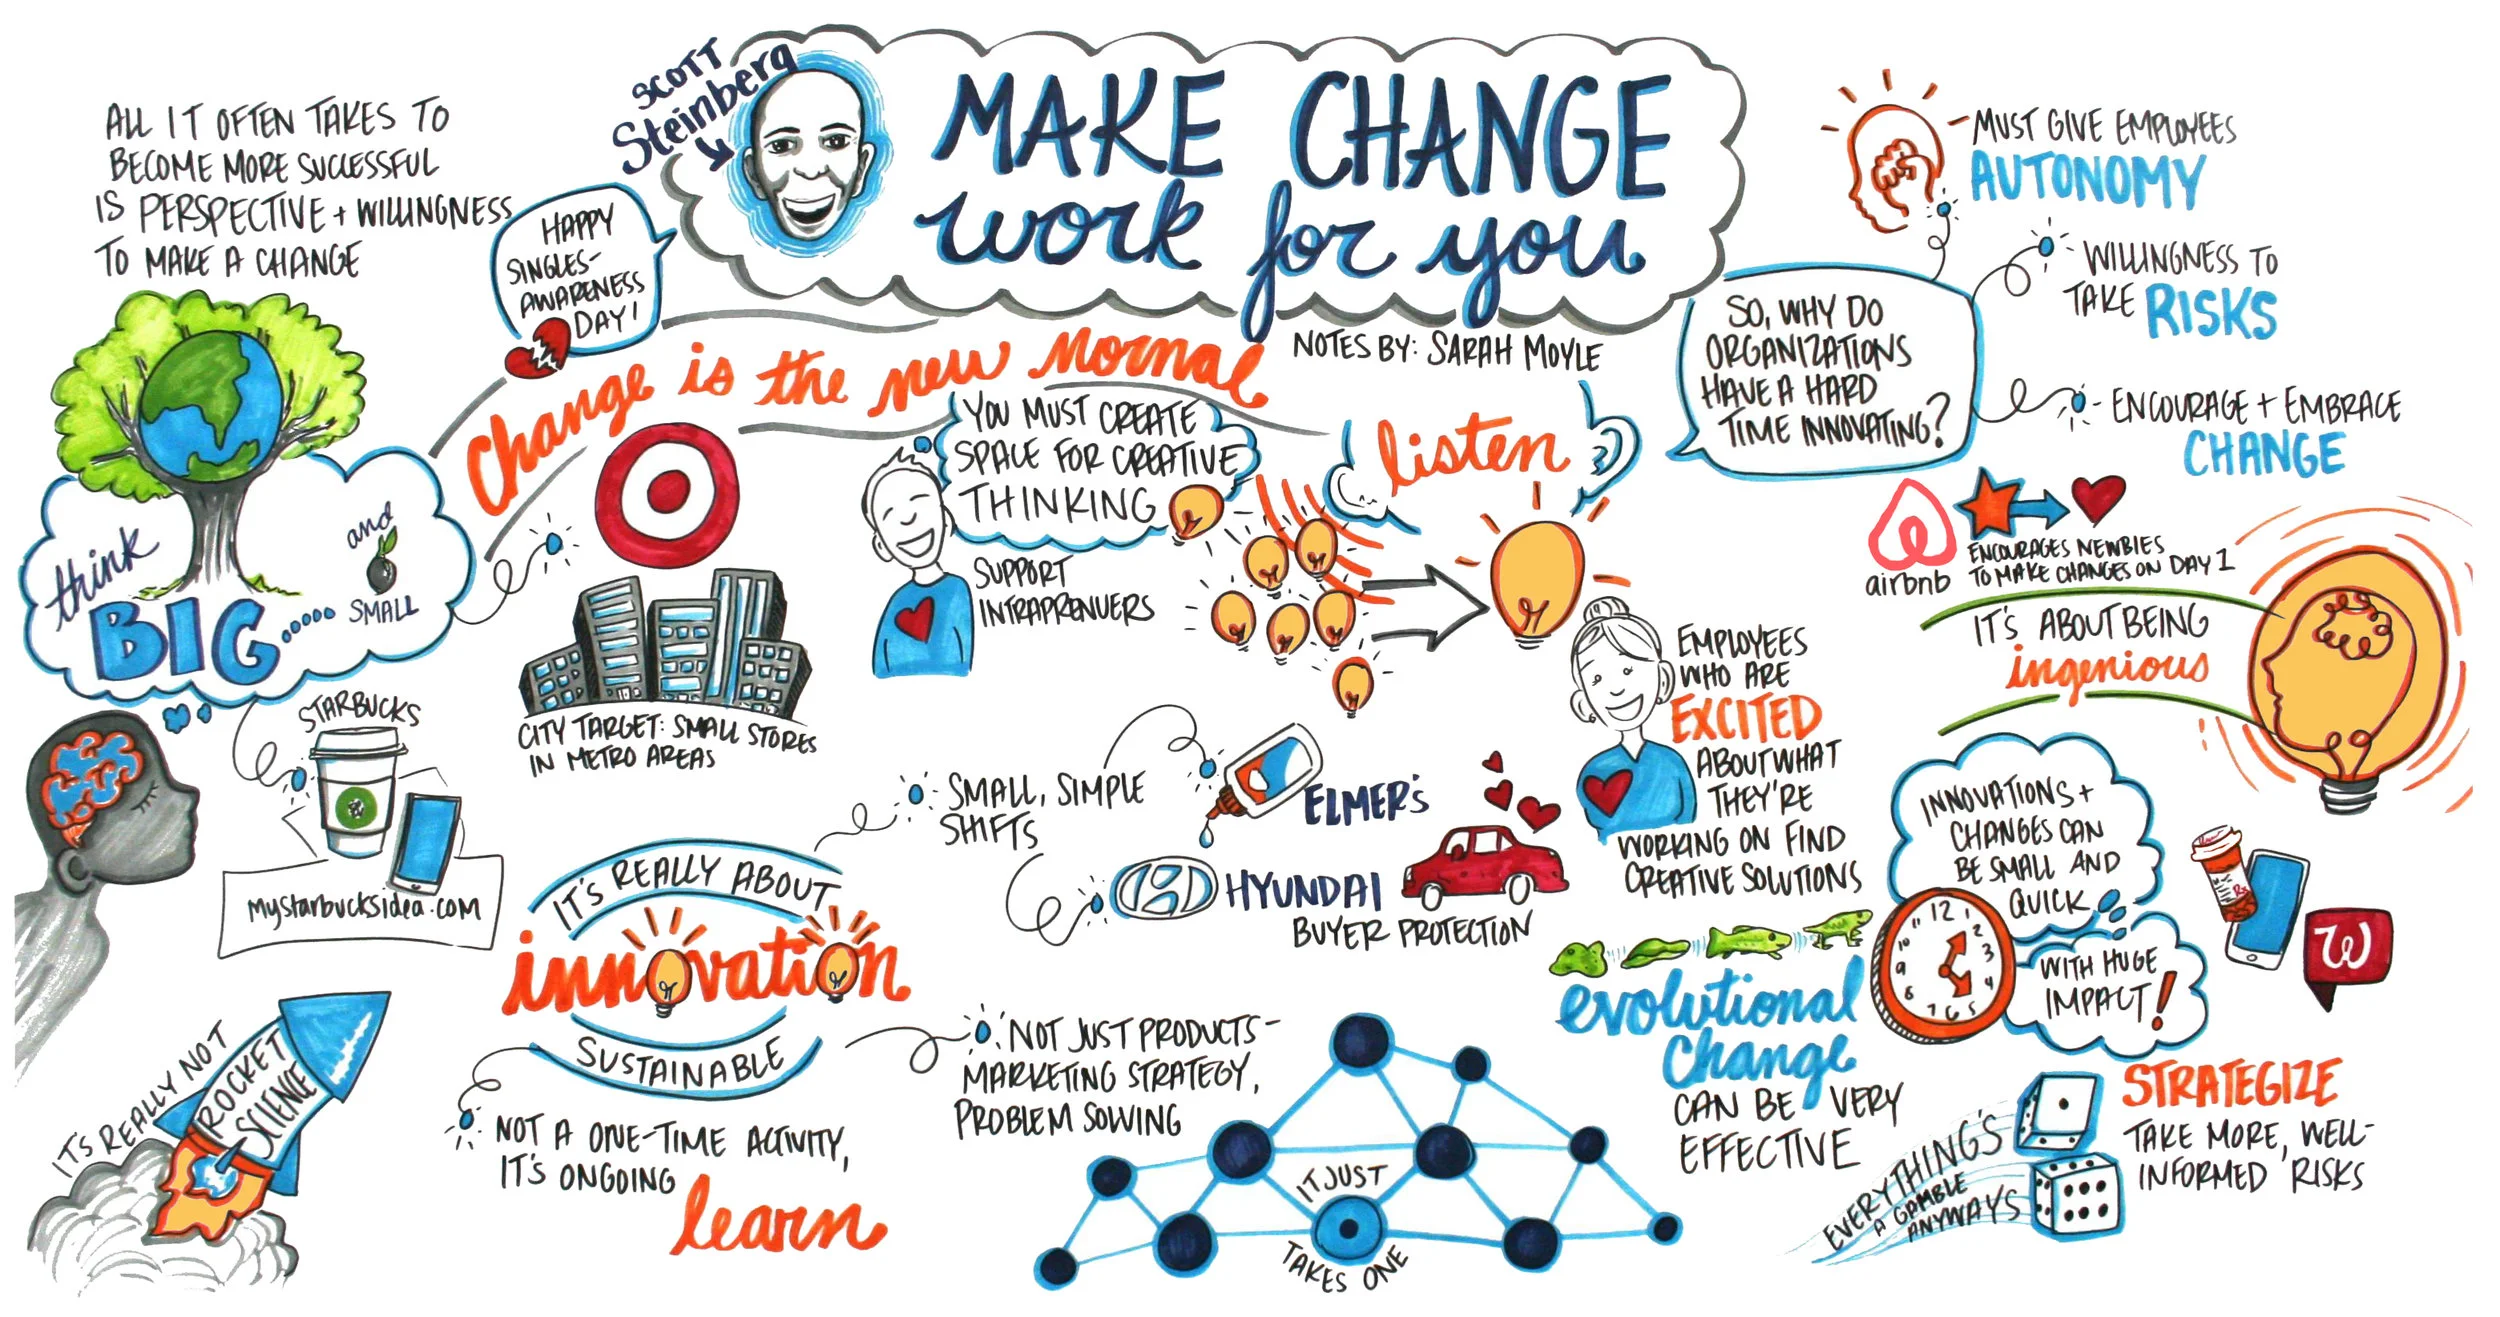 SCOTT
Steinberg
MAKE CHANGE
work for you
NOTES BY: SARAH MOYLE
ALL IT OFTEN TAKES TO
BECOME MORE SUCCESSFUL
IS PERSPECTIVE + WILLINGNESS
TO MAKE A CHANGE
HAPPY
SINGLES-
AWARENESS
DAY!
think
BIG.....
and
SMALL
Change is the new normal
CITY TARGET: SMALL STORES
IN METRO AREAS
STARBUCKS
mystarbucksidea.com
IT'S REALLY NOT
ROCKET
SCIENCE
YOU MUST CREATE
SPACE FOR CREATIVE
THINKING
SUPPORT
INTRAPRENUERS
listen
EMPLOYEES
WHO ARE
EXCITED
ABOUT WHAT
THEY'RE
WORKING ON FIND
CREATIVE SOLUTIONS
IT'S REALLY ABOUT
innovation
SUSTAINABLE
SMALL, SIMPLE
SHIFTS
ELMER'S
HYUNDAI
BUYER PROTECTION
NOT JUST PRODUCTS-
MARKETING STRATEGY,
PROBLEM SOLVING
NOT A ONE-TIME ACTIVITY,
IT'S ONGOING
learn
IT JUST
TAKES ONE
SO, WHY DO
ORGANIZATIONS
HAVE A HARD
TIME INNOVATING?
MUST GIVE EMPLOYEES
AUTONOMY
WILLINGNESS TO
TAKE RISKS
ENCOURAGE + EMBRACE
CHANGE
airbnb
ENCOURAGES NEWBIES
TO MAKE CHANGES ON DAY 1
IT'S ABOUT BEING
ingenious
INNOVATIONS +
CHANGES CAN
BE SMALL AND
QUICK
WITH HUGE
IMPACT!
12 1 2 3 4 5 6 7 8 9 10 11
Rx
W
evolutional
change
CAN BE VERY
EFFECTIVE
EVERYTHING'S
A GAMBLE
ANYWAYS
STRATEGIZE
TAKE MORE, WELL-
INFORMED RISKS